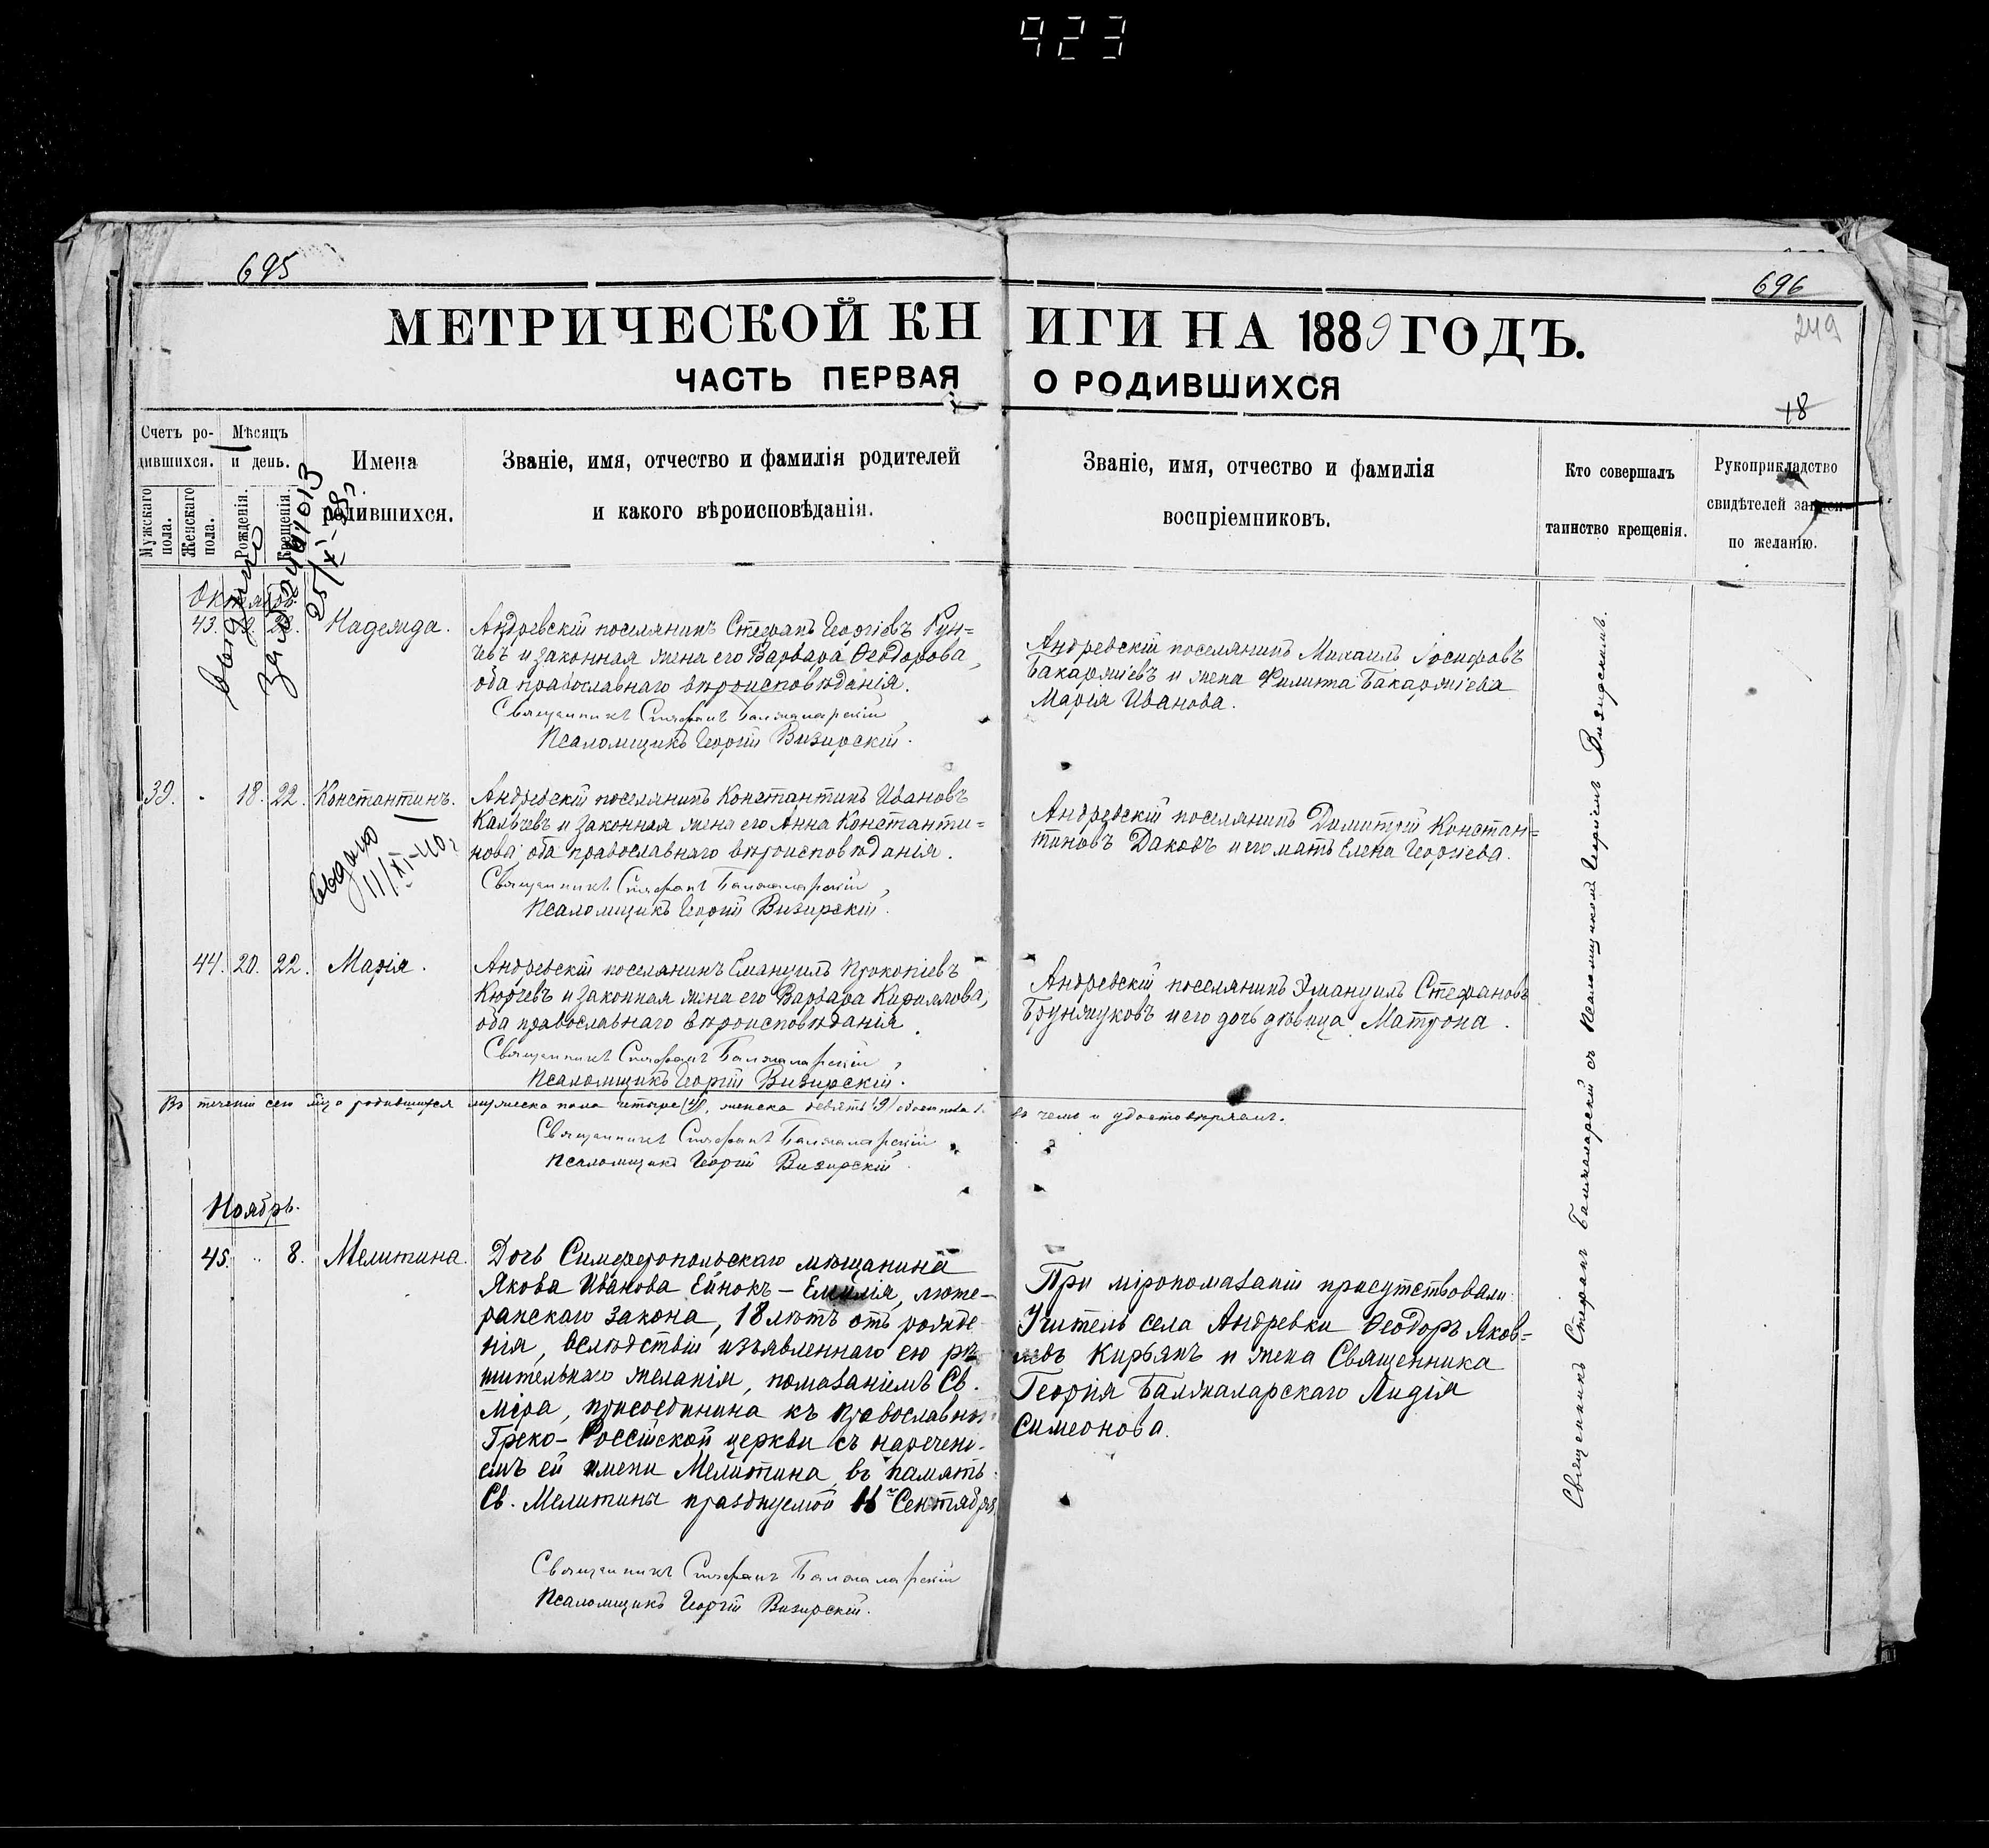 923
695
696
МЕТРИЧЕСКОЙ КНИГИ НА 1889 ГОДЪ.
249
ЧАСТЬ ПЕРВАЯ О РОДИВШИХСЯ
18
Счетъ родившихся.
Мужскаго пола.
Женскаго пола.
Мѣсяцъ и день.
Рожденія.
Крещенія.
Имена
родившихся.
Званіе, имя, отчество и фамилія родителей
и какого вѣроисповѣданія.
Званіе, имя, отчество и фамилія
воспріемниковъ.
Кто совершалъ
таинство крещенія.
Рукоприкладство
свидѣтелей записи
по желанію.
Выдано
25/XI-38г.
Октябрь
43. Надежда.
Андревскій поселянинъ Стефанъ Георгіевъ Кун=
чевъ и законная жена его Варвара Ѳеодорова,
оба православнаго вѣроисповѣданія.
Священникъ Стефанъ Балжаларскій,
Псаломщикъ Георгій Визирскій.
Андревскій поселянинъ Михаилъ Іосифовъ
Бакаржіевъ и жена Филиппа Бакаржіева
Марія Иванова.
39. 18. 22. Константинъ.
Выдано
11/XI-40г
Андревскій поселянинъ Константинъ Ивановъ
Кальчевъ и законная жена его Анна Константи=
нова, оба православнаго вѣроисповѣданія.
Священникъ Стефанъ Балжаларскій,
Псаломщикъ Георгій Визирскій.
Андревскій поселянинъ Димитрій Констан=
тиновъ Даковъ и его мать Елена Георгіева.
44. 20. 22. Марія.
Андревскій поселянинъ Емануилъ Прокопіевъ
Кюрчевъ и законная жена его Варвара Кириллова,
оба православнаго вѣроисповѣданія.
Священникъ Стефанъ Балжаларскій,
Псаломщикъ Георгій Визирскій.
Андревскій поселянинъ Эмануилъ Стефановъ
Брунжуковъ и его дочь дѣвица Матрона.
Въ теченіи сего м-ца родившихся мужеска пола четыре (4), женска девять (9) обоего пола въ чемъ и удостовѣряемъ.
Священникъ Стефанъ Балжаларскій
Псаломщикъ Георгій Визирскій
Ноябрь.
45. 8. Мелитина.
Дочь Симферопольскаго мѣщанина
Якова Иванова Ейнокъ – Емилія, люте-
ранскаго закона, 18 лѣтъ отъ рожде-
нія, вслѣдствіи изъявленнаго ею рѣ-
шительнаго желанія, помазаніемъ Св.
Мѵра, присоединена къ православной
Греко-Россійской церкви съ наречені-
емъ ей имени Мелитина, въ память
Св. Мелитины празднуемой 16го Сентября.
Священникъ Стефанъ Балжаларскій
Псаломщикъ Георгій Визирскій.
При мѵропомазаніи присутствовали:
Учитель села Андревки Ѳеодоръ Яков=
левъ Кирьянъ и жена Священника
Георгія Балжаларскаго Лидія
Симеонова.
Священникъ Стефанъ Балжаларскій съ псаломщикомъ Георгіемъ Визирскимъ.